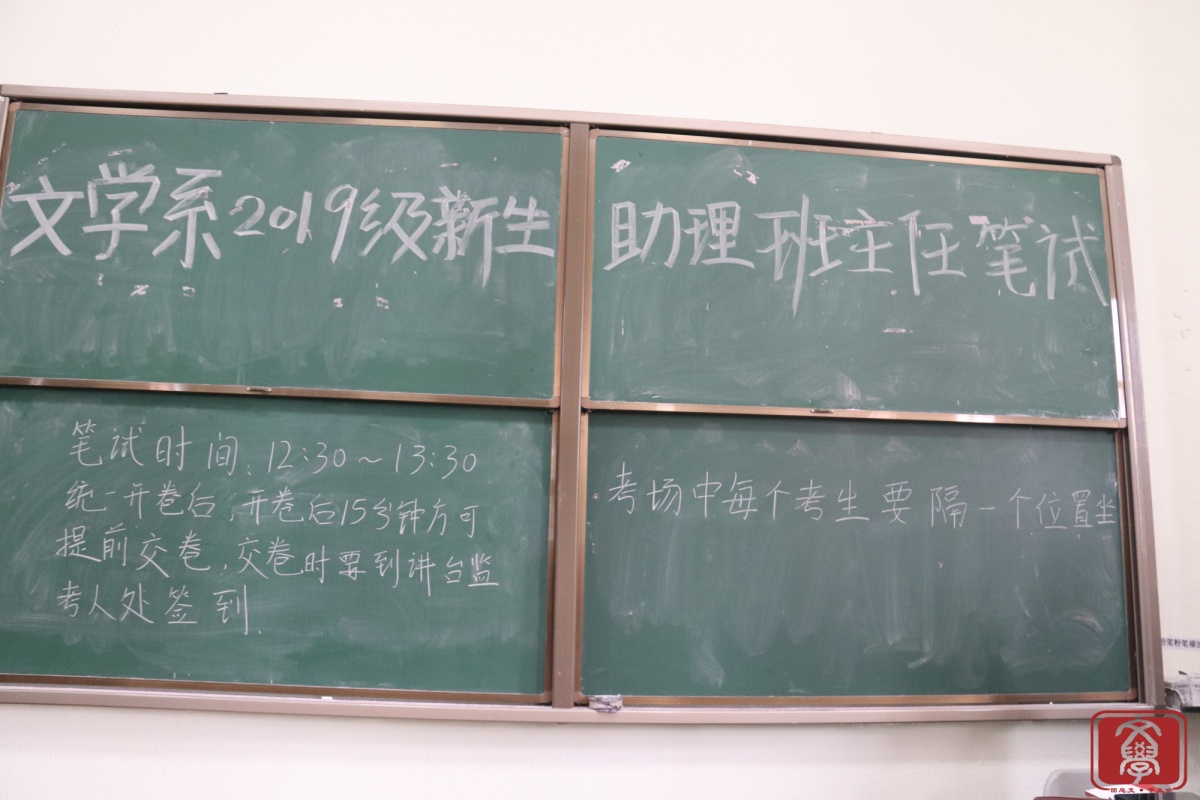 文学系2019级新生
助理班主任笔试
笔试时间：12:30~13:30
统一开卷后，开卷后15分钟方可
提前交卷，交卷时要到讲台监
考人处签到.
考场中每个考生要隔一个位置坐
文學